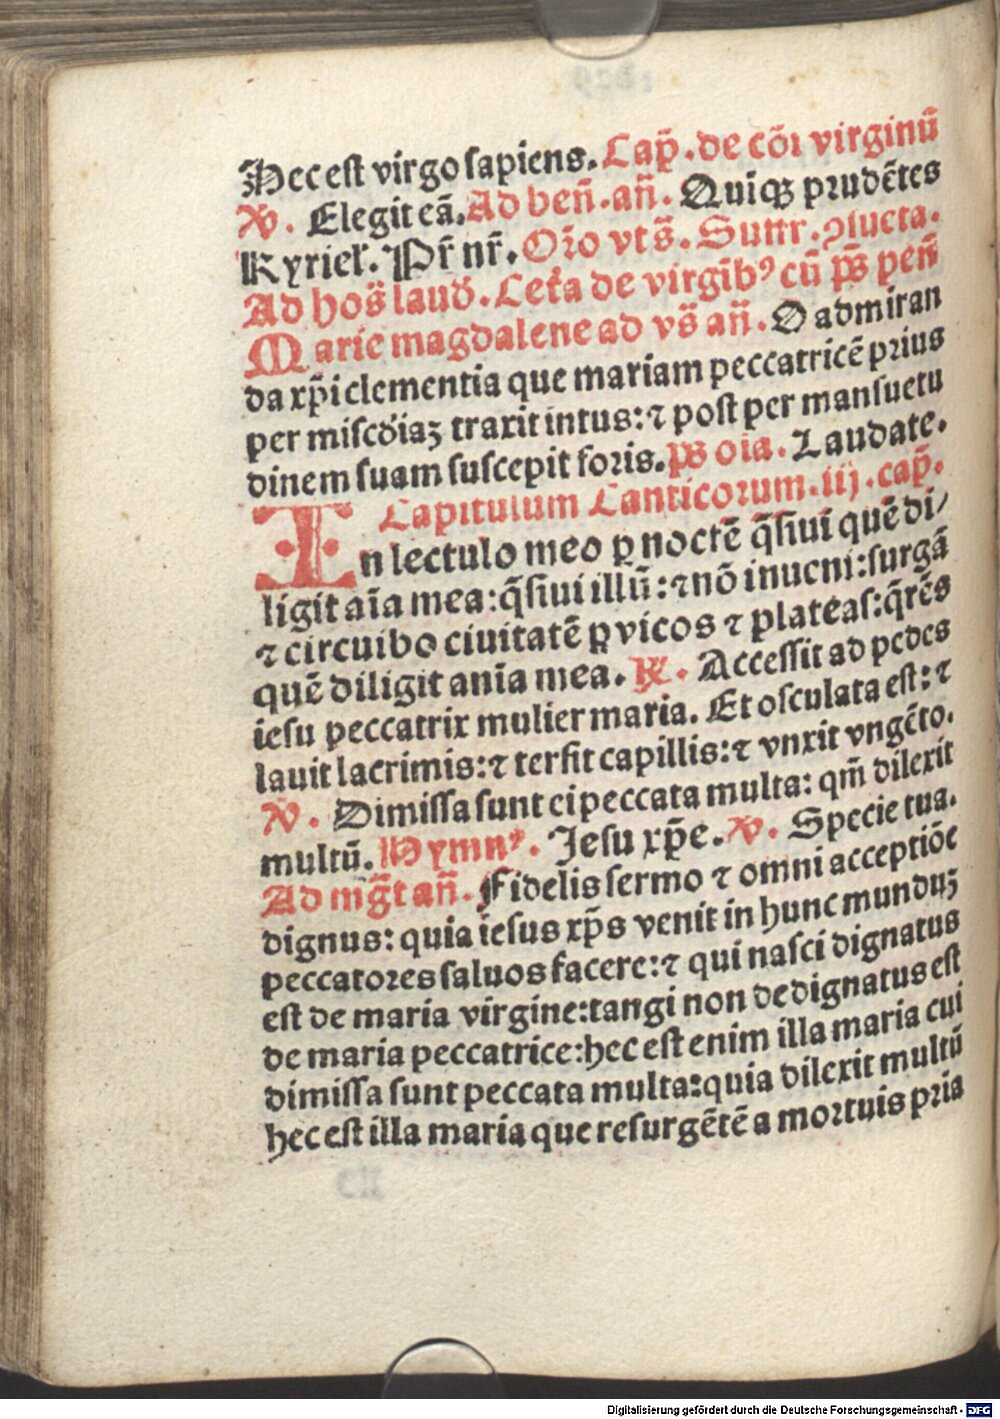 Hec est virgo sapiens. Cap̄. de cōi virginū
℣. Elegit eā. Ad ben̄. an̄. Quiqꝫ prudētes
Kyriel'. Pr̄ nr̄. Or̄o vt s̄. Suffr. ꝯsueta.
Ad hos̄ laud'. Cet'a de virgīb⁹ cū ps̄ pen̄
Marie magdalene ad vs̄ an̄. O admiran
da xp̄i clementia que mariam peccatricē prius
per misc'diaꝫ traxit intus: ⁊ post per mansuetu
dinem suam suscepit foris. ps̄ oīa. Laudate.
Capitulum Canticorum. iij. cap̄.
In lectulo meo ꝑ noctē q̄siui quē di/
ligit aīa mea: q̄siui illū: ⁊ nō inueni: surgā
⁊ circuibo ciuitatē ꝑ vicos ⁊ plateas: q̄rēs
quē diligit anīa mea. ℟. Accessit ad pedes
iesu peccatrix mulier maria. Et osculata est: ⁊
lauit lacrimis: ⁊ tersit capillis: ⁊ vnxit vngēto.
℣. Dimissa sunt ei peccata multa: qm̄ dilexit
multū. Hymn⁹. Jesu xp̄e. ℣. Specie tua.
Ad mḡt an̄. Fidelis sermo ⁊ omni acceptiōe
dignus: quia iesus xp̄s venit in hunc munduꝫ
peccatores saluos facere: ⁊ qui nasci dignatus
est de maria virgine: tangi non dedignatus est
de maria peccatrice: hec est enim illa maria cui
dimissa sunt peccata multa: quia dilexit multū
hec est illa maria que resurgētē a mortuis pria
Digitalisierung gefördert durch die Deutsche Forschungsgemeinschaft - DFG